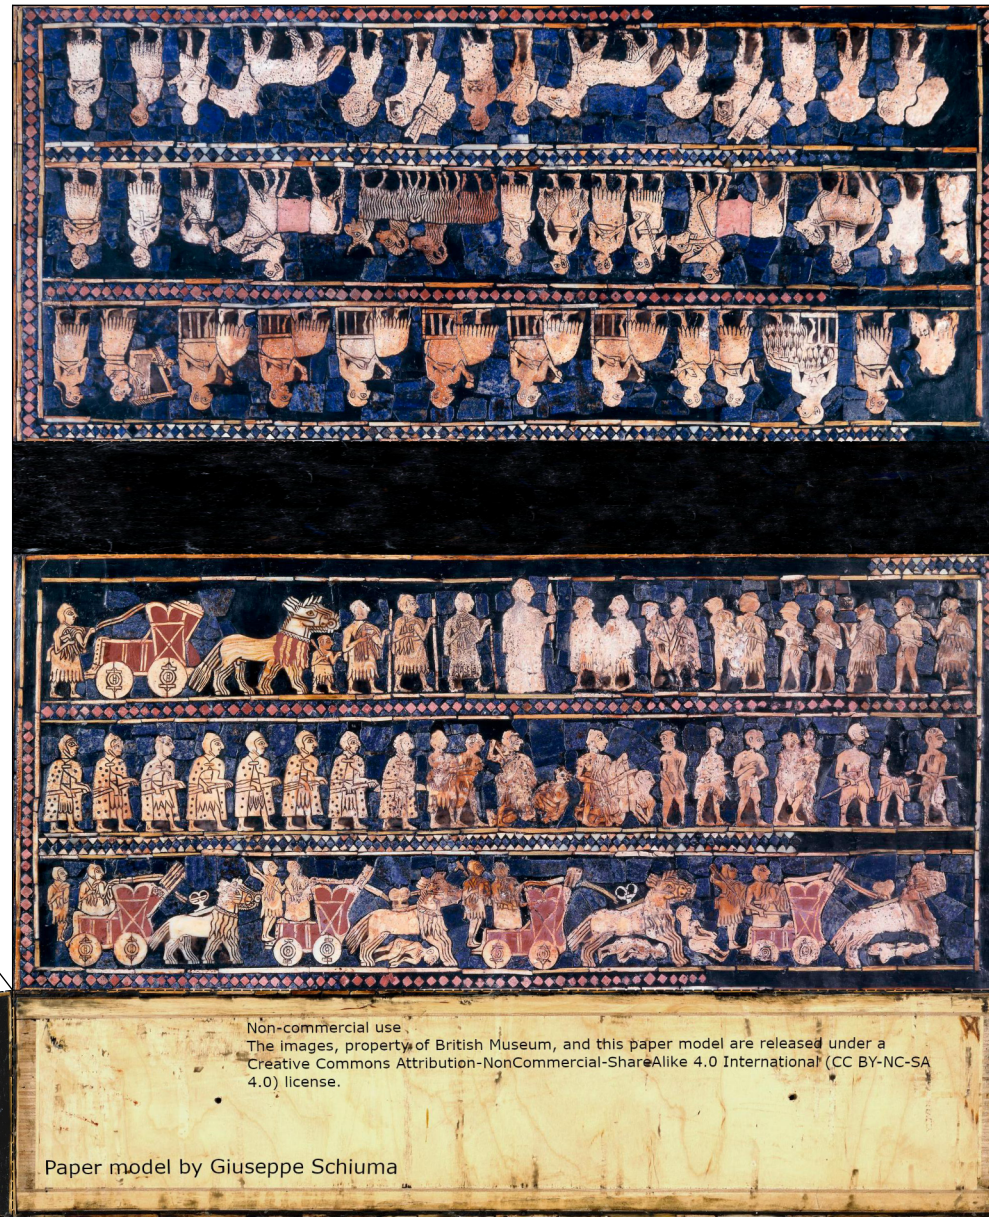 Non-commercial use
The images, property of British Museum, and this paper model are released under a
Creative Commons Attribution-NonCommercial-ShareAlike 4.0 International (CC BY-NC-SA
4.0) license.
Paper model by Giuseppe Schiuma